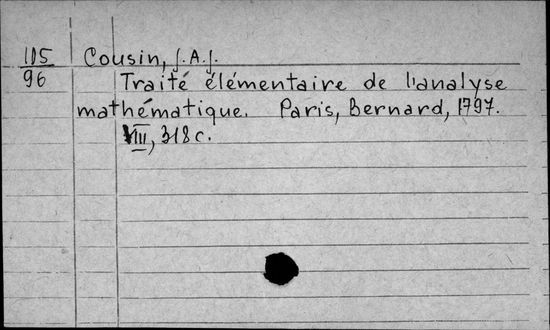 115 Cousin, J. A. J.
96 Traité élémentaire de l'analyse
mathématique. Paris, Bernard, 1797.
VIII, 318 c.